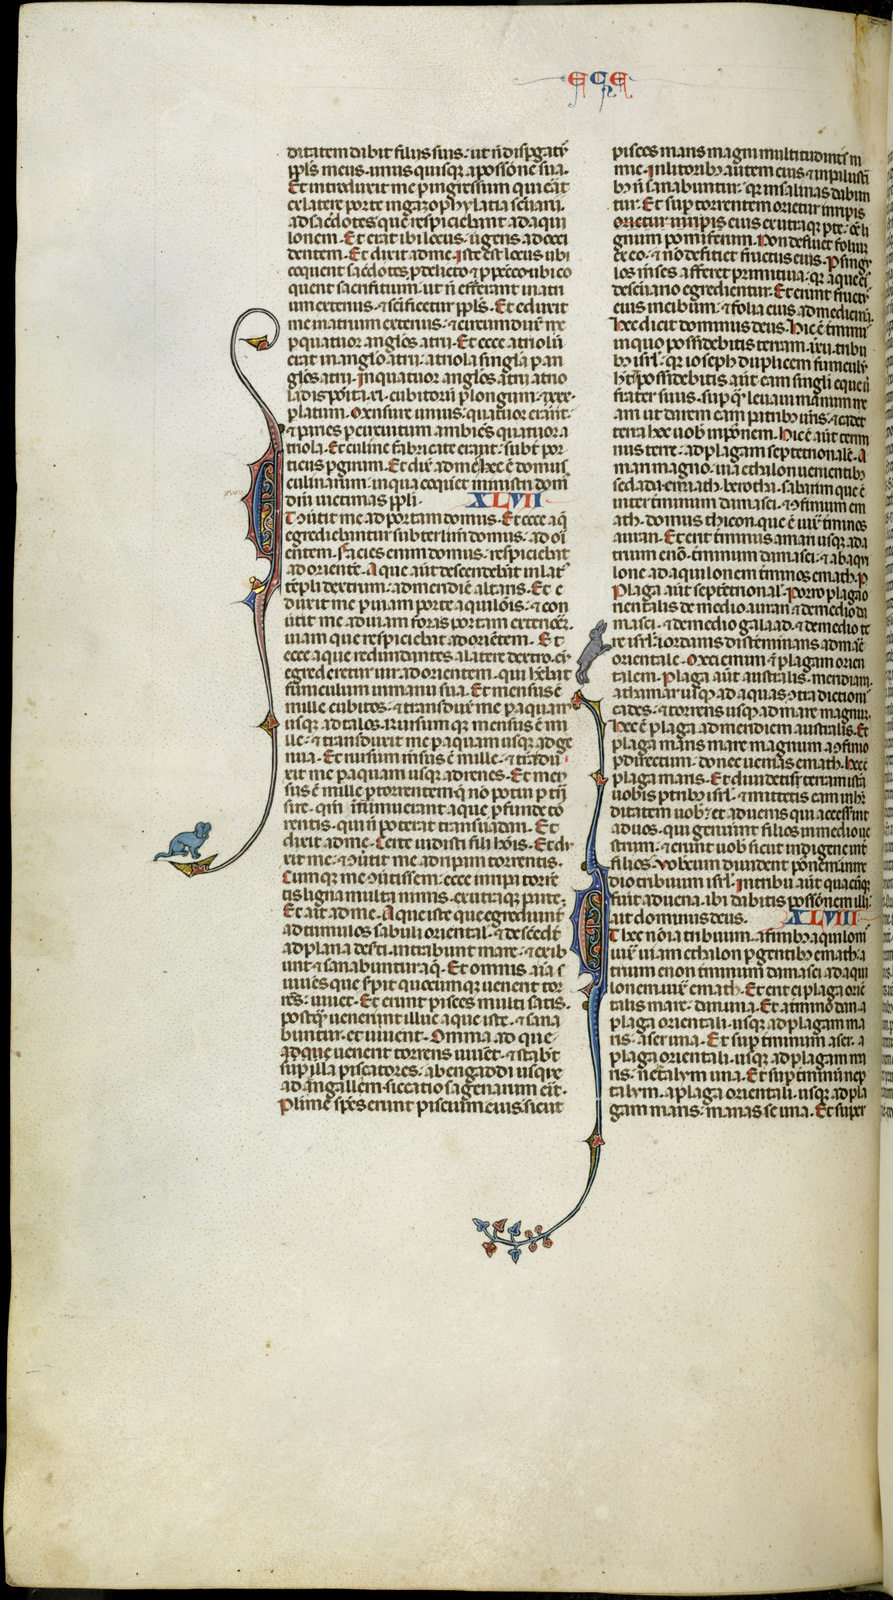 ECE
ditatem dabit filiis suis· ut n̄ dispgat᷑
ppl̄s meus· unusquisq apossōne sua·
Et introduxit me p ingressum qui erāt
ex latere porte in gazophylatia sc̄uarii·
ad sac̄dotes que respiciebant ad aqui
lonem· Et erat ibi locus· uergens ad occi
dentem· Et dixit ad me· Iste est locus ubi
coquent sac̄dotes p delicto ⁊ p pecc̄o· ubi co
quent sacrificium· ut n̄ efferant in atri
um exterius· ⁊ sc̄ificetur ppl̄s· Et eduxit
me in atrium exterius· ⁊ circumduxit me
p quatuor anglos atrii· Et ecce atriolū
erat in anglo atrii· atriola singla p an
glos atrii· In quatuor anglos atrii atrio
la disposita· xl· cubitorū p longum· ⁊ xxx·
p latum· Mensure unius· quatuor erant·
⁊ paries p circuitum ambiēs quatuor a
triola· Et culine fabricate erant· subt᷑ por
ticus p girum· Et dix̄ ad me· hec ē domus
culinarum· in qua coquēt ministri dom̄
dn̄i uictimas ppl̄i·
XLVII
Et ꝯu̇tit me ad portam domus· Et ecce aq̄
egrediebantur subter limē domus· ad ori
entem· Facies enim domus· respiciebat
ad orientē· Aque aūt descendebāt in lat᷑
tēpli dextrum· ad meridiē altaris· Et e
duxit me p uiam porte aquilōis· ⁊ con
u̇tit me ad uiam foras portam exteriorē·
uiam que respiciebat ad oriētem· Et
ecce aque redundantes a latere dextro· cū
egrederetur uir ad orientem· qui hēbat
funiculum in manu sua· Et mensus ē
mille cubitos· ⁊ transdux̄ me p aquam
usq ad talos· Rursumq mensus ē mi
lle· ⁊ transduxit me p aquam usq ad ge
nua· Et rursum m̄sus ē mille· ⁊ trāsdu
xit me p aquam usq ad renes· Et men
sus ē mille p torrentem q̄ nō potui p trā
sire· qm̄ intumuerant aque p funde to
rentis· qui n̄ poterat transuadari· Et
dixit ad me· Certe uidisti fili hōis· Et di
xit me· ⁊ ꝯu̇tit me ad ripam torrentis·
Cumq me ꝯu̇tissem· ecce in ripa torrē
tis ligna multa nimis· ex utraq parte·
Et ait ad me· Aque iste que egrediunt᷑
ad tumulos sabuli oriental̄· ⁊ descēdt̄
ad plana desti· intrabunt mare· ⁊ exib
unt· ⁊ sanabuntur aq̄· Et omnis aīa
uiuēs que serpit quocumq uenerit tor
rēs· uiuet· Et erunt pisces multi satis·
postq uenerint illuc aque iste· ⁊ sana
buntur· et uiuent· Omnia ad que
ad que uenerit torrens uiuēt· ⁊ stabūt
sup illa piscatores· ab engaddi usque
ad angallem· siccatio sagenarum erit·
Plurime spēs erunt piscium eius· sicut
pisces maris magni multitudinis ni
mie· In litoribȝ autem eius ⁊ in palustri
bȝ n̄ sanabuntur· qr in salinas dabun
tur· Et sup torrentem orietur in ripis
orietur in ripis eius ex utraq pte· om̄e li
gnum pomiferum· Non defluet folium
ex eo· ⁊ nō deficiet fructus eius· P singu
los m̄ses afferet primitiua· qr aque ei
de sc̄uario egredientur· Et erunt fruct᷑
eius in cibum· ⁊ folia eius ad medicinā·
hec dicit dominus deus· hic ē tminus
in quo possidebitis terram· xii· tribu
bȝ isrl̄· qr ioseph duplicem funiculū
ht᷑· Possidebitis aūt eam singli eque ū
frater suus· sup q̄ leuaui manum me
am ut darem eam patribȝ ur̄is· ⁊ cadet
terra hec uob̄ in possōnem· hic ē aūt termi
nus terre· ad plagam septētrionalē· A
mari magno· uia ethalon uenientibȝ
sedada· emath· berotha· sabarim que ē
inter tminum damasci· ⁊ ꝯfinium em
ath· domus thicon· que ē iux̄ tminos
auran· Et erit tminus a mari usq ad a
trium enō· tminum damasci· ⁊ ab aqui
lone ad aquilonem tminos emath· P
Plaga aūt septētrional̄· Porro plaga o
rientalis de medio auran ⁊ de medio da
masci· ⁊ de medio galaad· ⁊ de medio te
re isrl̄· iordanis disterminans ad marē
orientale· Metiemini ⁊ plagam orien
talem· Plaga aūt australis· meridiana·
athamar usq ad aquas ꝯtradictionis
cades· ⁊ torrens usq ad mare magnum·
hec ē plaga ad meridiem australis· Et
plaga maris mare magnum a ꝯfinio
p directum· donec uenias emath· hec ē
plaga maris· Et diuidetis terram istā
uobis p tribȝ isrl̄· ⁊ mittetis eam in here
ditatem uob̄· et aduenis qui accesserint
ad uos· qui genuerint filios in medio ue
strum· ⁊ erunt uob̄ sicut indigene int᷑
filios· Vobcum diuident possōnem in me
dio tribuum isrl̄· In tribu aūt quacūq
fuerit aduena· ibi dabitis possōnem illi·
ait dominus deus·
XLVIII
Et hec nōia tribuum· a finibȝ aquiloni
iux̄ uiam ethalon pgentibȝ emath· a
trium enon tminum damasci ad aqui
lonem iux̄ emath· Et erit ei plaga oriē
talis mare· dan una· Et a tmino dan· a
plaga orientali· usq ad plagam ma
ris· aser una· Et sup tminum aser· a
plaga orientali· usq ad plagam ma
ris· neptalym una· Et sup tminū nep
talym· a plaga orientali· usq ad pla
gam maris· manasse una· Et super